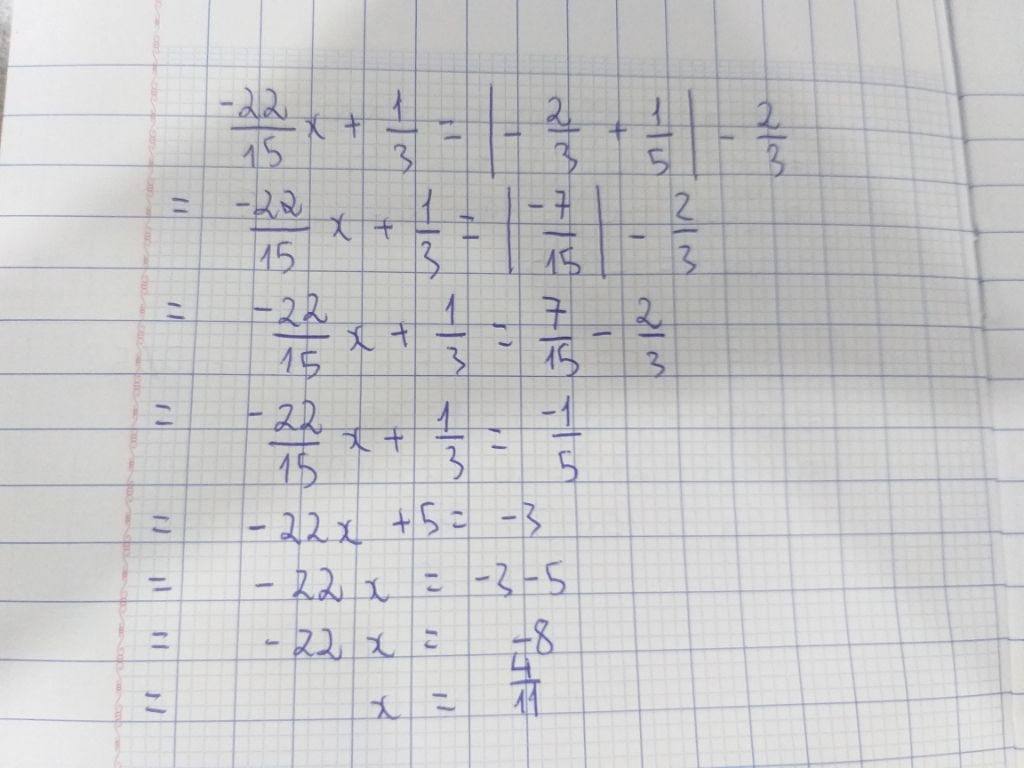 -22/15 x + 1/3 = |- 2/3 + 1/5| - 2/3
= -22/15 x + 1/3 = |-7/15| - 2/3
= -22/15 x + 1/3 = 7/15 - 2/3
= -22/15 x + 1/3 = -1/5
= -22x + 5 = -3
= -22x = -3-5
= -22x = -8
= x = 4/11